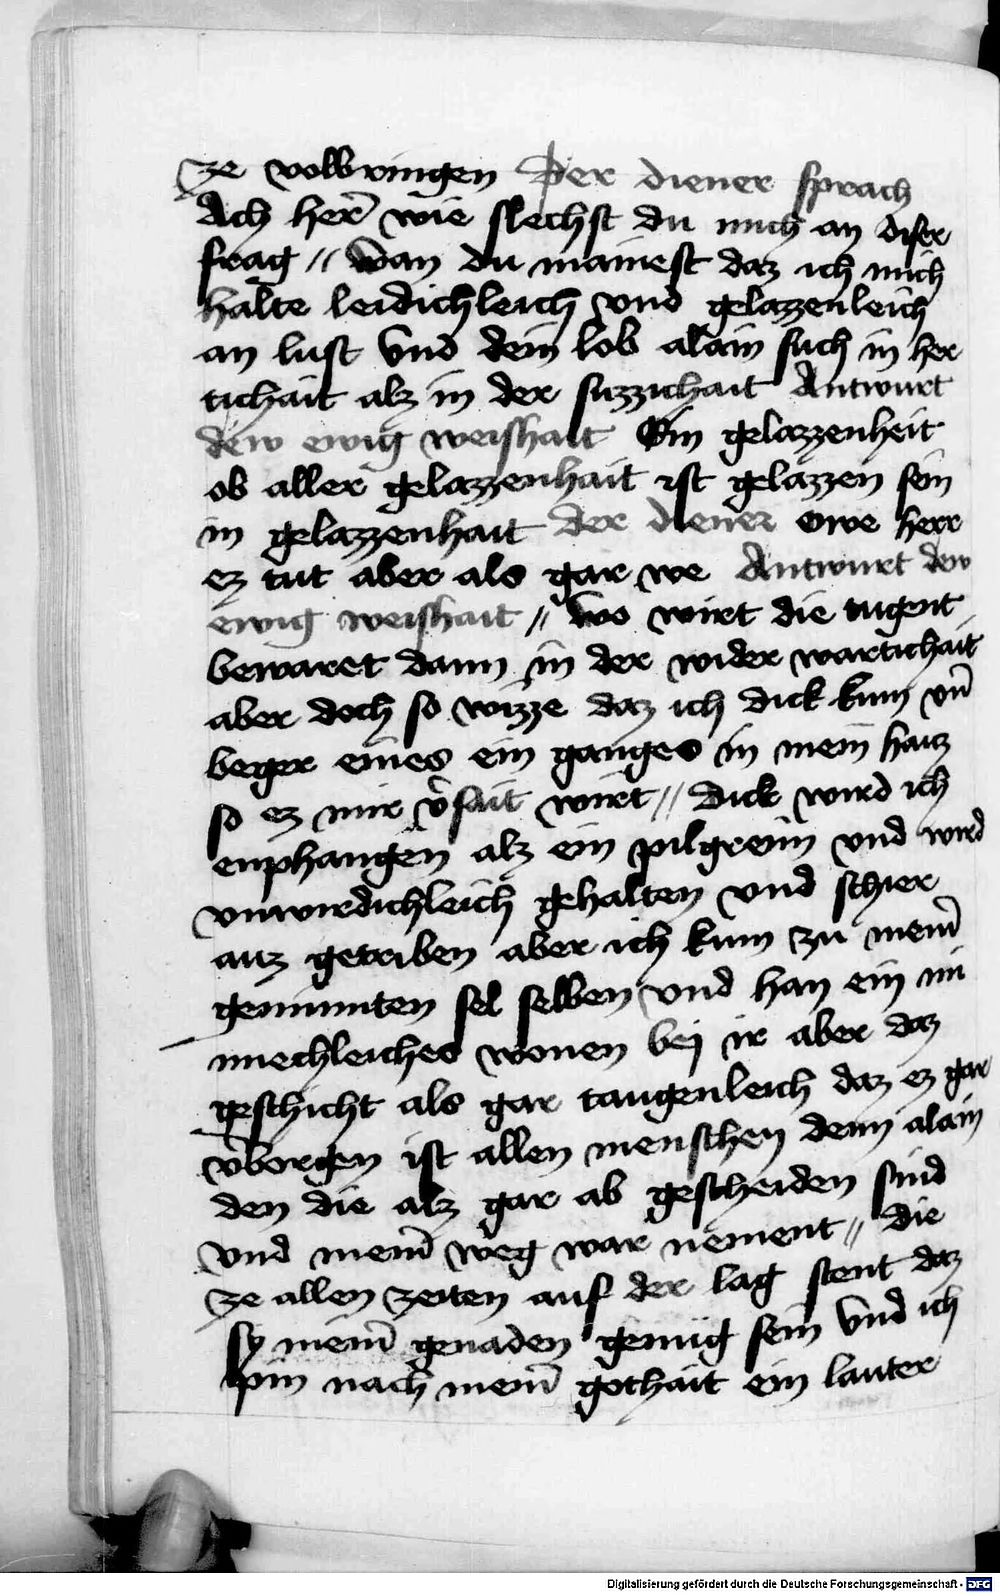 ze volbringen Der diener sprach
Ach herr̄ wie slechst du mich an diser
frag // Wan du mainest daz ich mich
halte leidichleich vnd gelazzenleich
an lust Vnd dein lob alain such in her
tichait alz in der suzzichait Antwurt
dew ewig weishait Ein gelazzenheit
ob aller gelazzenhait ist gelazzen sein
in gelazzenhait der diener owe herr
ez tut aber als gar we Antwurt dew
ewig weishait // Wo wirt die tugent
bewaret dann in der wider wartichait
aber doch so wizze daz ich dick kum vn̄
beger eines ein ganges in mein haus
so ez mir v̄sait wirt // Dick wird ich
enphangen alz ein pilgreim vnd wird
vnwirdichleich gehalten vnd schier
auz getriben aber ich kum zu mein̄
geminnten sel selben vnd han ein mi
nnechleiches wonen bej ir aber daz
geschicht als gar taugenleich daz ez gar
v̄borgen ist allen menschen denn alain
den die alz gar ab gescheiden sind
vnd mein̄ weg war nement // die
ze allen zeiten auf der lag stent daz
sy mein̄ genaden genug sein Vnd ich
pin nach mein̄ gothait ein lauter
Digitalisierung gefördert durch die Deutsche Forschungsgemeinschaft - DFG